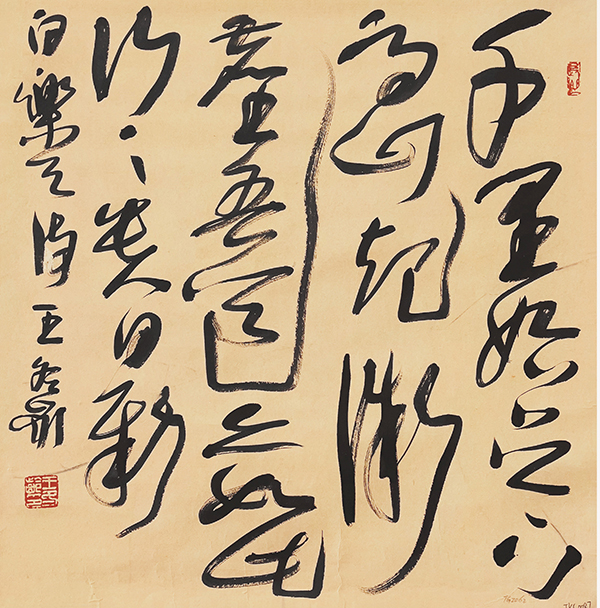 千里始足下
高山起微
塵吾道亦如此
行之貴日新
白樂天詩 王冬齡